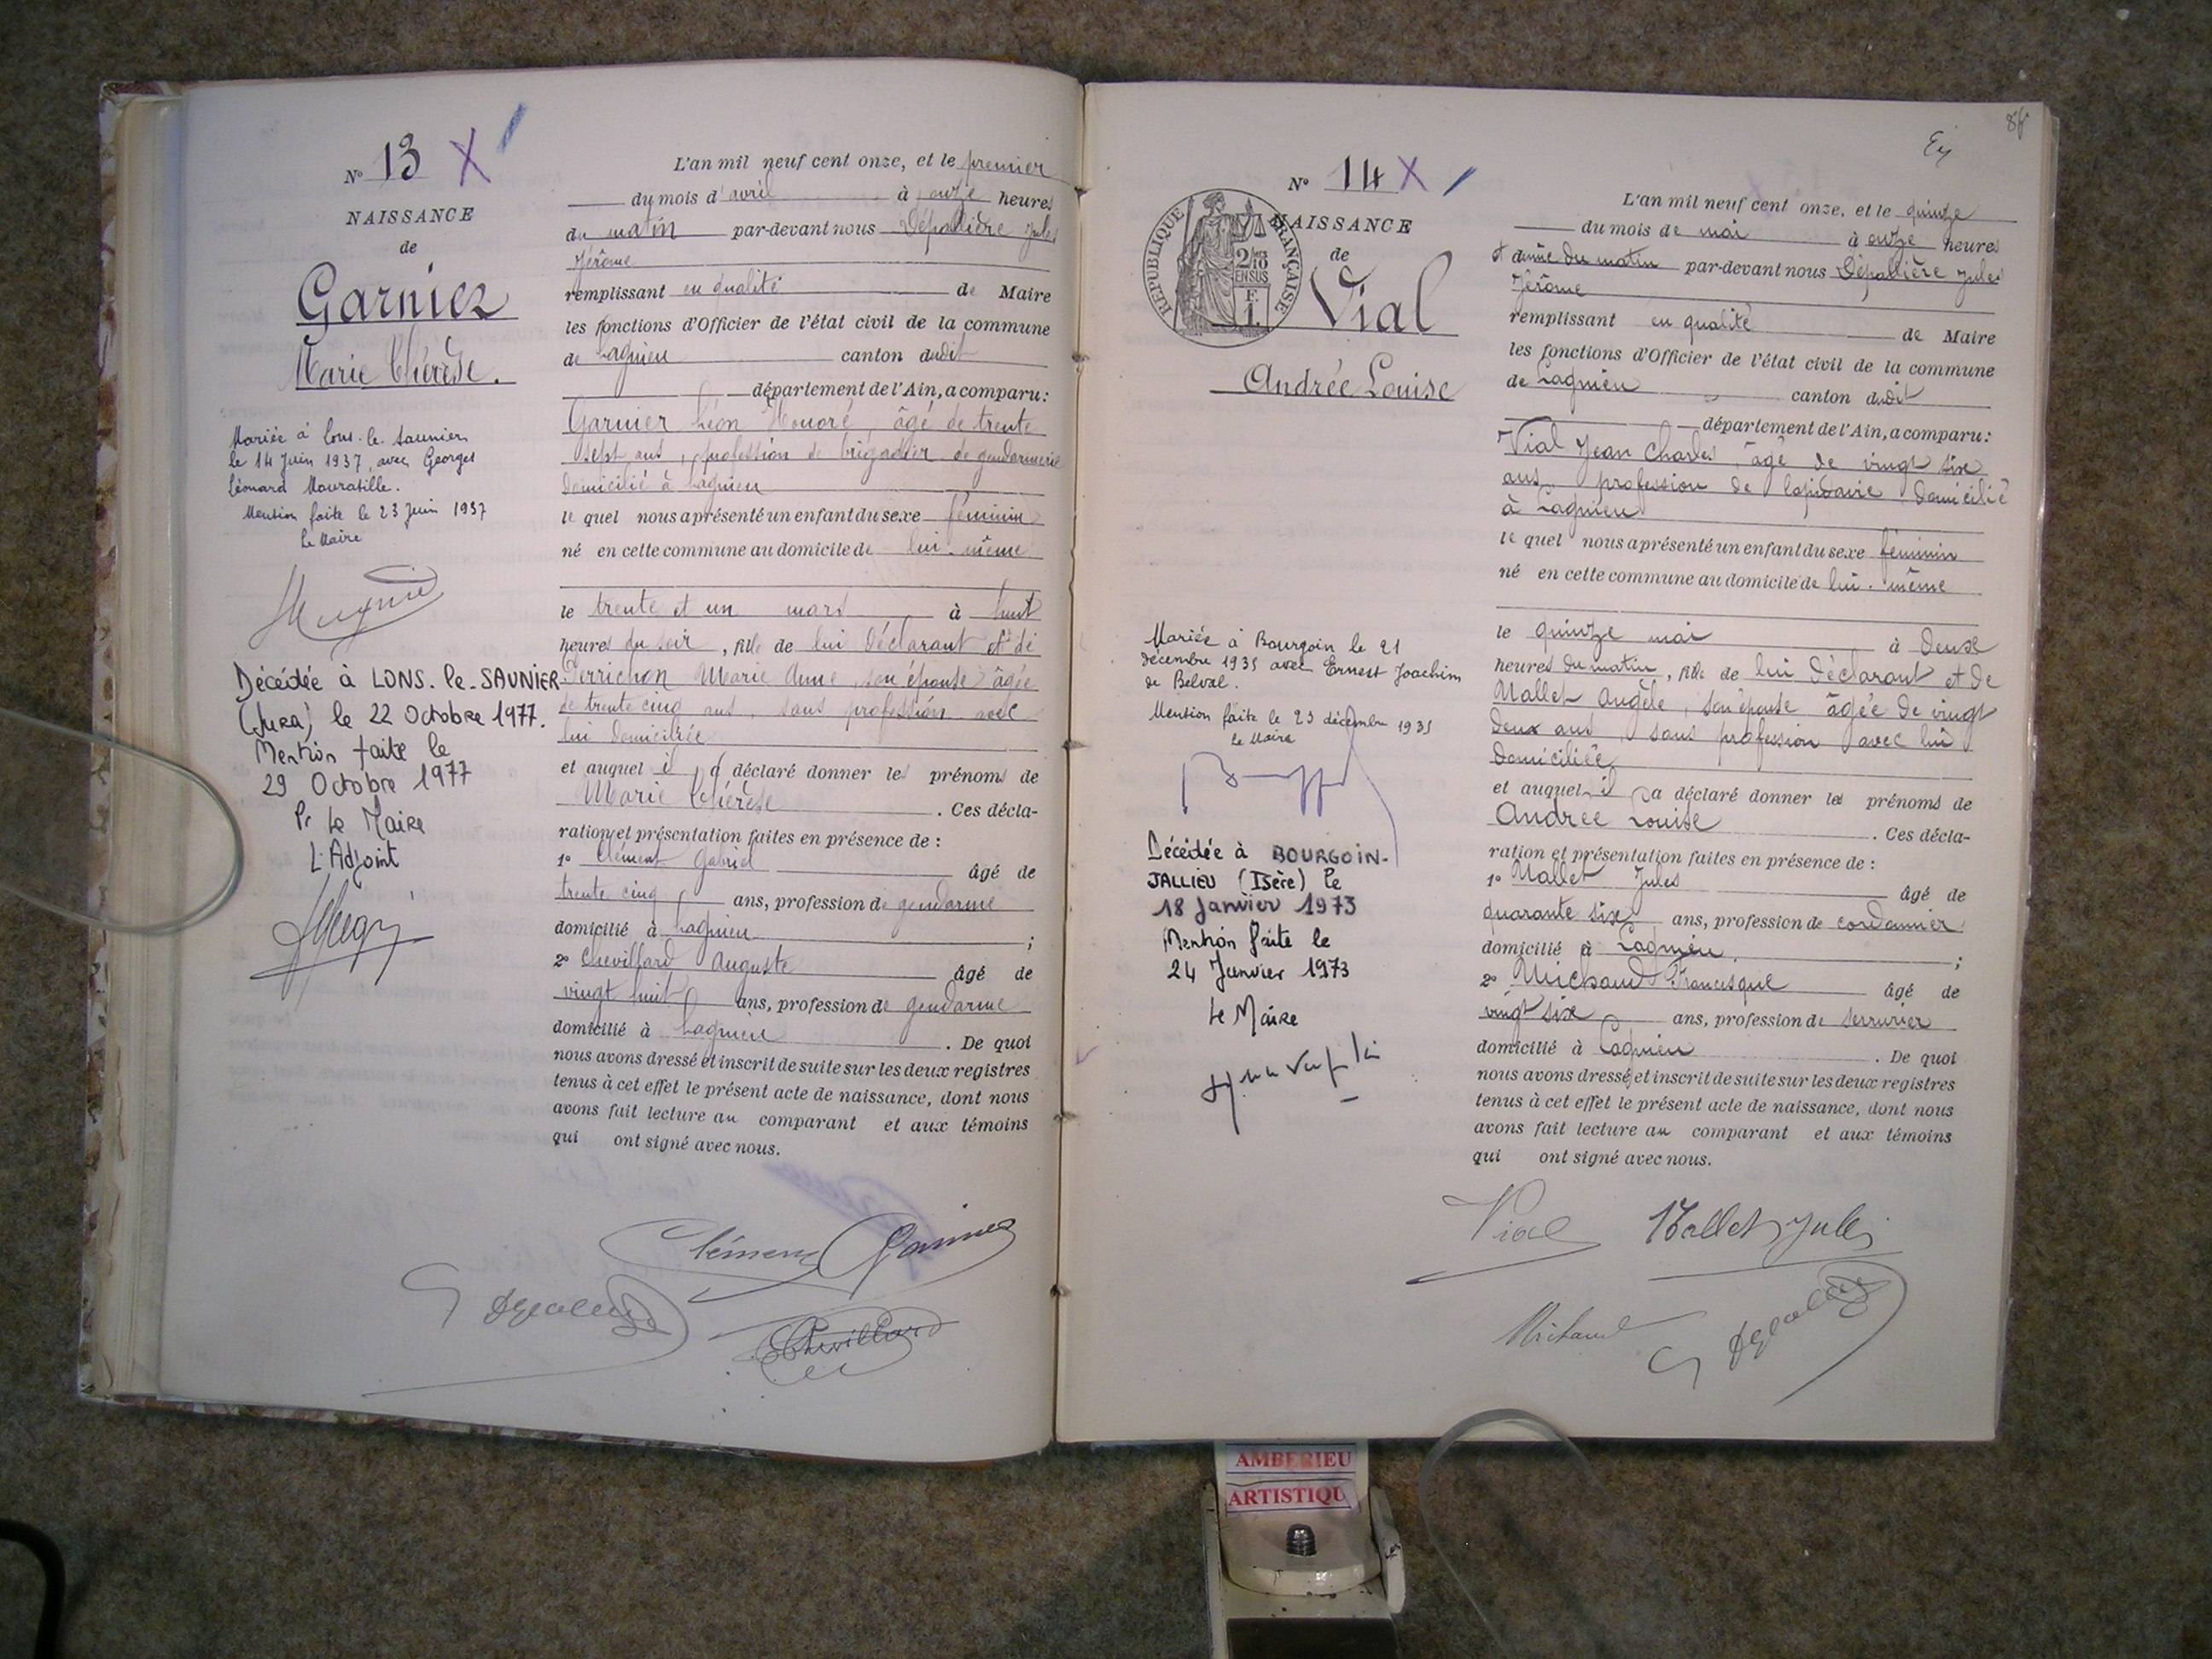 N° 13 X
NAISSANCE
de
Garnier
Marie Thérèse.
Mariée à Lons-le-Saunier
le 14 Juin 1937, avec Georges
Léonard Mouratille.
Mention faite le 23 Juin 1937
Le Maire
Décédée à LONS-le-SAUNIER
(JURA) le 22 Octobre 1977.
Mention faite le
29 Octobre 1977
Pr Le Maire
L'Adjoint
L'an mil neuf cent onze, et le premier
du mois d'avril à onze heures
du matin par-devant nous Dépallière Jules
Jérôme
remplissant en qualité de Maire
les fonctions d'Officier de l'état civil de la commune
de Lagnieu canton dudit
département de l'Ain, a comparu:
Garnier Léon Honoré, âgé de trente
sept ans, profession de brigadier de gendarmerie
domicilié à Lagnieu
lequel nous a présenté un enfant du sexe féminin
né en cette commune au domicile de lui-même
le trente et un mars à huit
heures du soir, fille de lui déclarant et de
Perrichon Marie Anne, son épouse âgée
de trente cinq ans, sans profession avec
lui domiciliée
et auquel il a déclaré donner les prénoms de
Marie Thérèse. Ces décla-
ration et présentation faites en présence de :
1° Clément Gabriel âgé de
trente cinq ans, profession de gendarme
domicilié à Lagnieu ;
2° Chevillard Auguste âgé de
vingt huit ans, profession de gendarme
domicilié à Lagnieu. De quoi
nous avons dressé et inscrit de suite sur les deux registres
tenus à cet effet le présent acte de naissance, dont nous
avons fait lecture au comparant et aux témoins
qui ont signé avec nous.
Clément Garnier
Chevillard
N° 14 X
RÉPUBLIQUE FRANÇAISE
2/10 EN SUS
F. 1.
NAISSANCE
de
Vial
Andrée Louise
Mariée à Bourgoin le 21
décembre 1935 avec Ernest Joachim
de Belval.
Mention faite le 23 décembre 1935
Le Maire
Décédée à BOURGOIN-
JALLIEU (Isère) le
18 Janvier 1973
Mention faite le
24 Janvier 1973
Le Maire
L'an mil neuf cent onze, et le quinze
du mois de mai à onze heures
et demie du matin par-devant nous Dépallière Jules
Jérôme
remplissant en qualité de Maire
les fonctions d'Officier de l'état civil de la commune
de Lagnieu canton dudit
département de l'Ain, a comparu:
Vial Jean Charles, âgé de vingt six
ans, profession de lapidaire domicilié
à Lagnieu
lequel nous a présenté un enfant du sexe féminin
né en cette commune au domicile de lui-même
le quinze mai à deux
heures du matin, fille de lui déclarant et de
Mallet Angèle, son épouse âgée de vingt
deux ans, sans profession avec lui
domiciliée
et auquel il a déclaré donner les prénoms de
Andrée Louise. Ces décla-
ration et présentation faites en présence de :
1° Mallet Jules âgé de
quarante six ans, profession de cordonnier
domicilié à Lagnieu ;
2° Michaud Francisque âgé de
vingt six ans, profession de serrurier
domicilié à Lagnieu. De quoi
nous avons dressé et inscrit de suite sur les deux registres
tenus à cet effet le présent acte de naissance, dont nous
avons fait lecture au comparant et aux témoins
qui ont signé avec nous.
Vial Mallet Jules
Michaud
AMBERIEU
ARTISTIQU